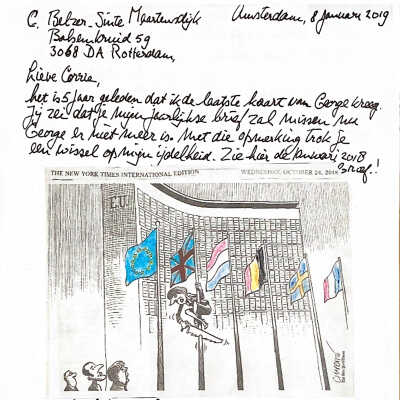 C. Belzer-Sinte Maartensdijk Amsterdam, 8 januari 2019
Balsemkruid 59
3068 DA Rotterdam,
Lieve Corrie,
het is 5 jaar geleden dat ik de laatste kaart van George kreeg.
Jij zei dat je mijn jaarlijkse brief zal missen nu
George er niet meer is. Met die opmerking trok je
een wissel op mijn ijdelheid. Zie hier de januari 2018
brief!
THE NEW YORK TIMES INTERNATIONAL EDITION WEDNESDAY, OCTOBER 24, 2018
E.U.